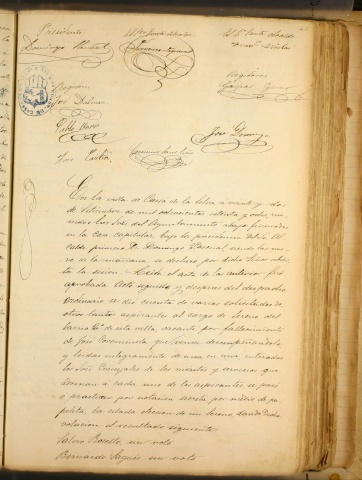 Presidente
Domingo Pascual
El 1er Teniente Alcalde
El 2º Teniente Alcalde
Regidores
José
Pablo
José
José Domingo
En la villa de Cassá de la Selva á veinte y dos
de Setiembre de mil ochocientos setenta y ocho, reu-
nidos los Sres. del Ayuntamiento abajo firmados
en la casa capitular, bajo la presidencia del Sr. Al-
calde primero D. Domingo Pascual siendo las nue-
ve de la mañana, se declaró por dicho Señor abier-
ta la sesion. Leida el acta de la anterior fué
aprobada. Acto seguido y despues del despacho
ordinario se dió cuenta de varias solicitudes de
otros tantos aspirantes al cargo de Sereno del
barrio de esta villa, vacante por fallecimiento
de José que venia desempeñandolo
y leidas integramente de una en una, enterados
los Sres. Concejales de los meritos y servicios que
adornan á cada uno de los aspirantes, se pasó
á practicar por votacion secreta por medio de pa-
peleta, la citada eleccion de un Sereno, dando dicha
votacion el resultado siguiente:
un voto
Bernardo un voto